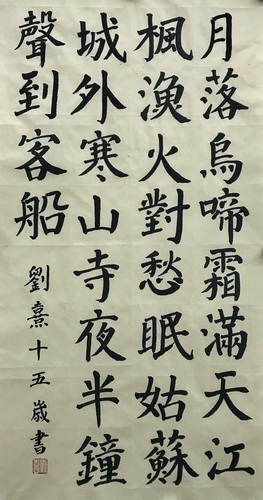 月落烏啼霜滿天江
楓漁火對愁眠姑蘇
城外寒山寺夜半鐘
聲到客船
劉熹十五歲書